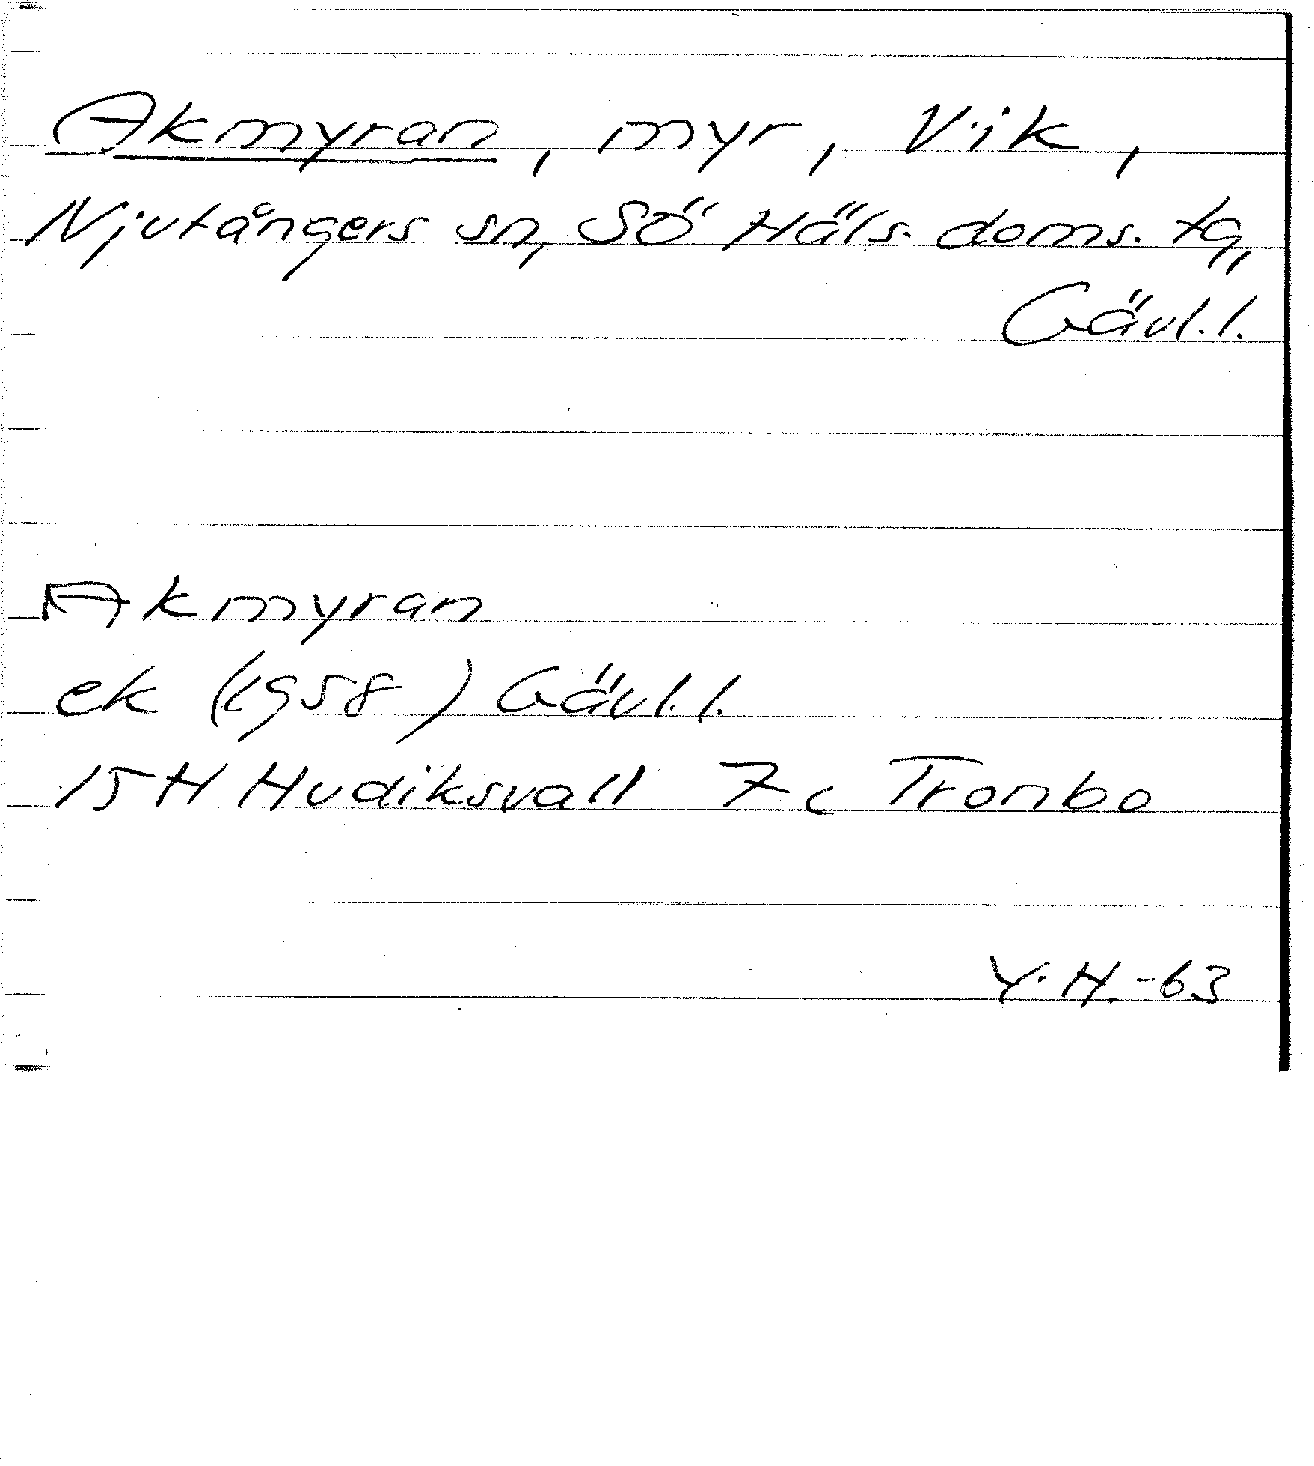 Akmyran, myr, Vik,
Njutångers sn, Sö Häls. doms. tg,
Gävl.l.
Akmyran
ek (1958) Gävl.l.
15H Hudiksvall 7c Trombo
Y.H.-63